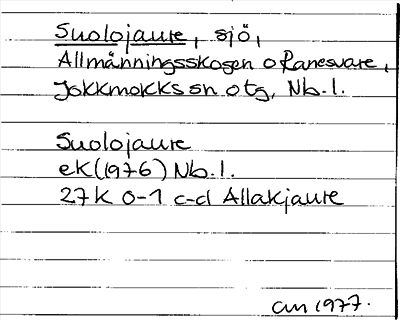 Suolojaure, sjö,
Allmänningsskogen o Ranesvare,
Jokkmokks sn o tg, Nb. l.
Suolojaure
ek (1976) Nb. l.
27 K 0-1 c-d Allakjaure
am 1977.